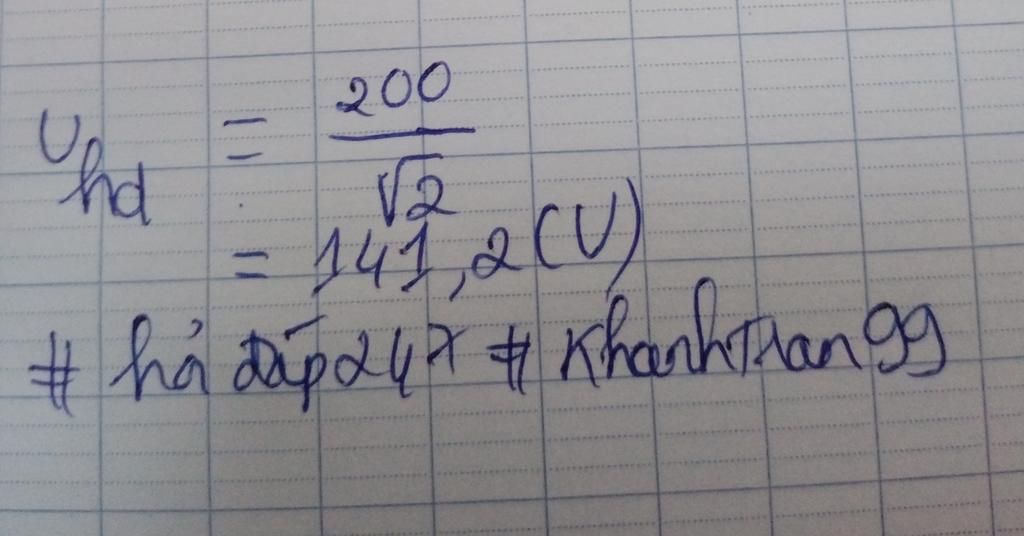 U_hd = 200/√2
= 141,2 (V)
# hỏi đáp 247 # KhanhThan99